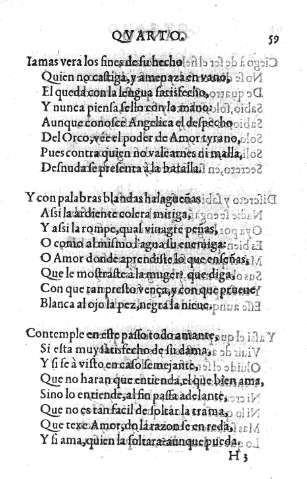 QVARTO. 59
Iamas vera los fines de su hecho
Quien no castiga, y amenaza en vano,
El queda con la lengua satisfecho,
Y nunca piensa sello con la mano:
Aunque conosce Angelica el despecho
Del Orco, vee el poder de Amor tyrano,
Pues contra quien no vale arnes ni malla,
Desnuda se presenta à la batalla.
Y con palabras blandas halagueñas
Assi la ardiente colera mitiga,
Y assi la rompe, qual vinagre peñas,
O como al mismo fuego su enemiga:
O Amor donde aprendiste lo que enseñas,
Que le mostraste a la muger que diga,
Con que tan presto vença, y con que prueue
Blanca al ojo la pez, negra la nieue.
Contemple en este passo todo amante,
Si esta muy satisfecho de su dama,
Y si se à visto en caso semejante,
Que no haran que entienda, el que bien ama,
Sino lo entiende, al fin passa adelante,
Que no es tan facil de soltar la trama,
Que texe Amor, do la razon se enreda,
Y si ama, quien la soltara aunque pueda.
H 3